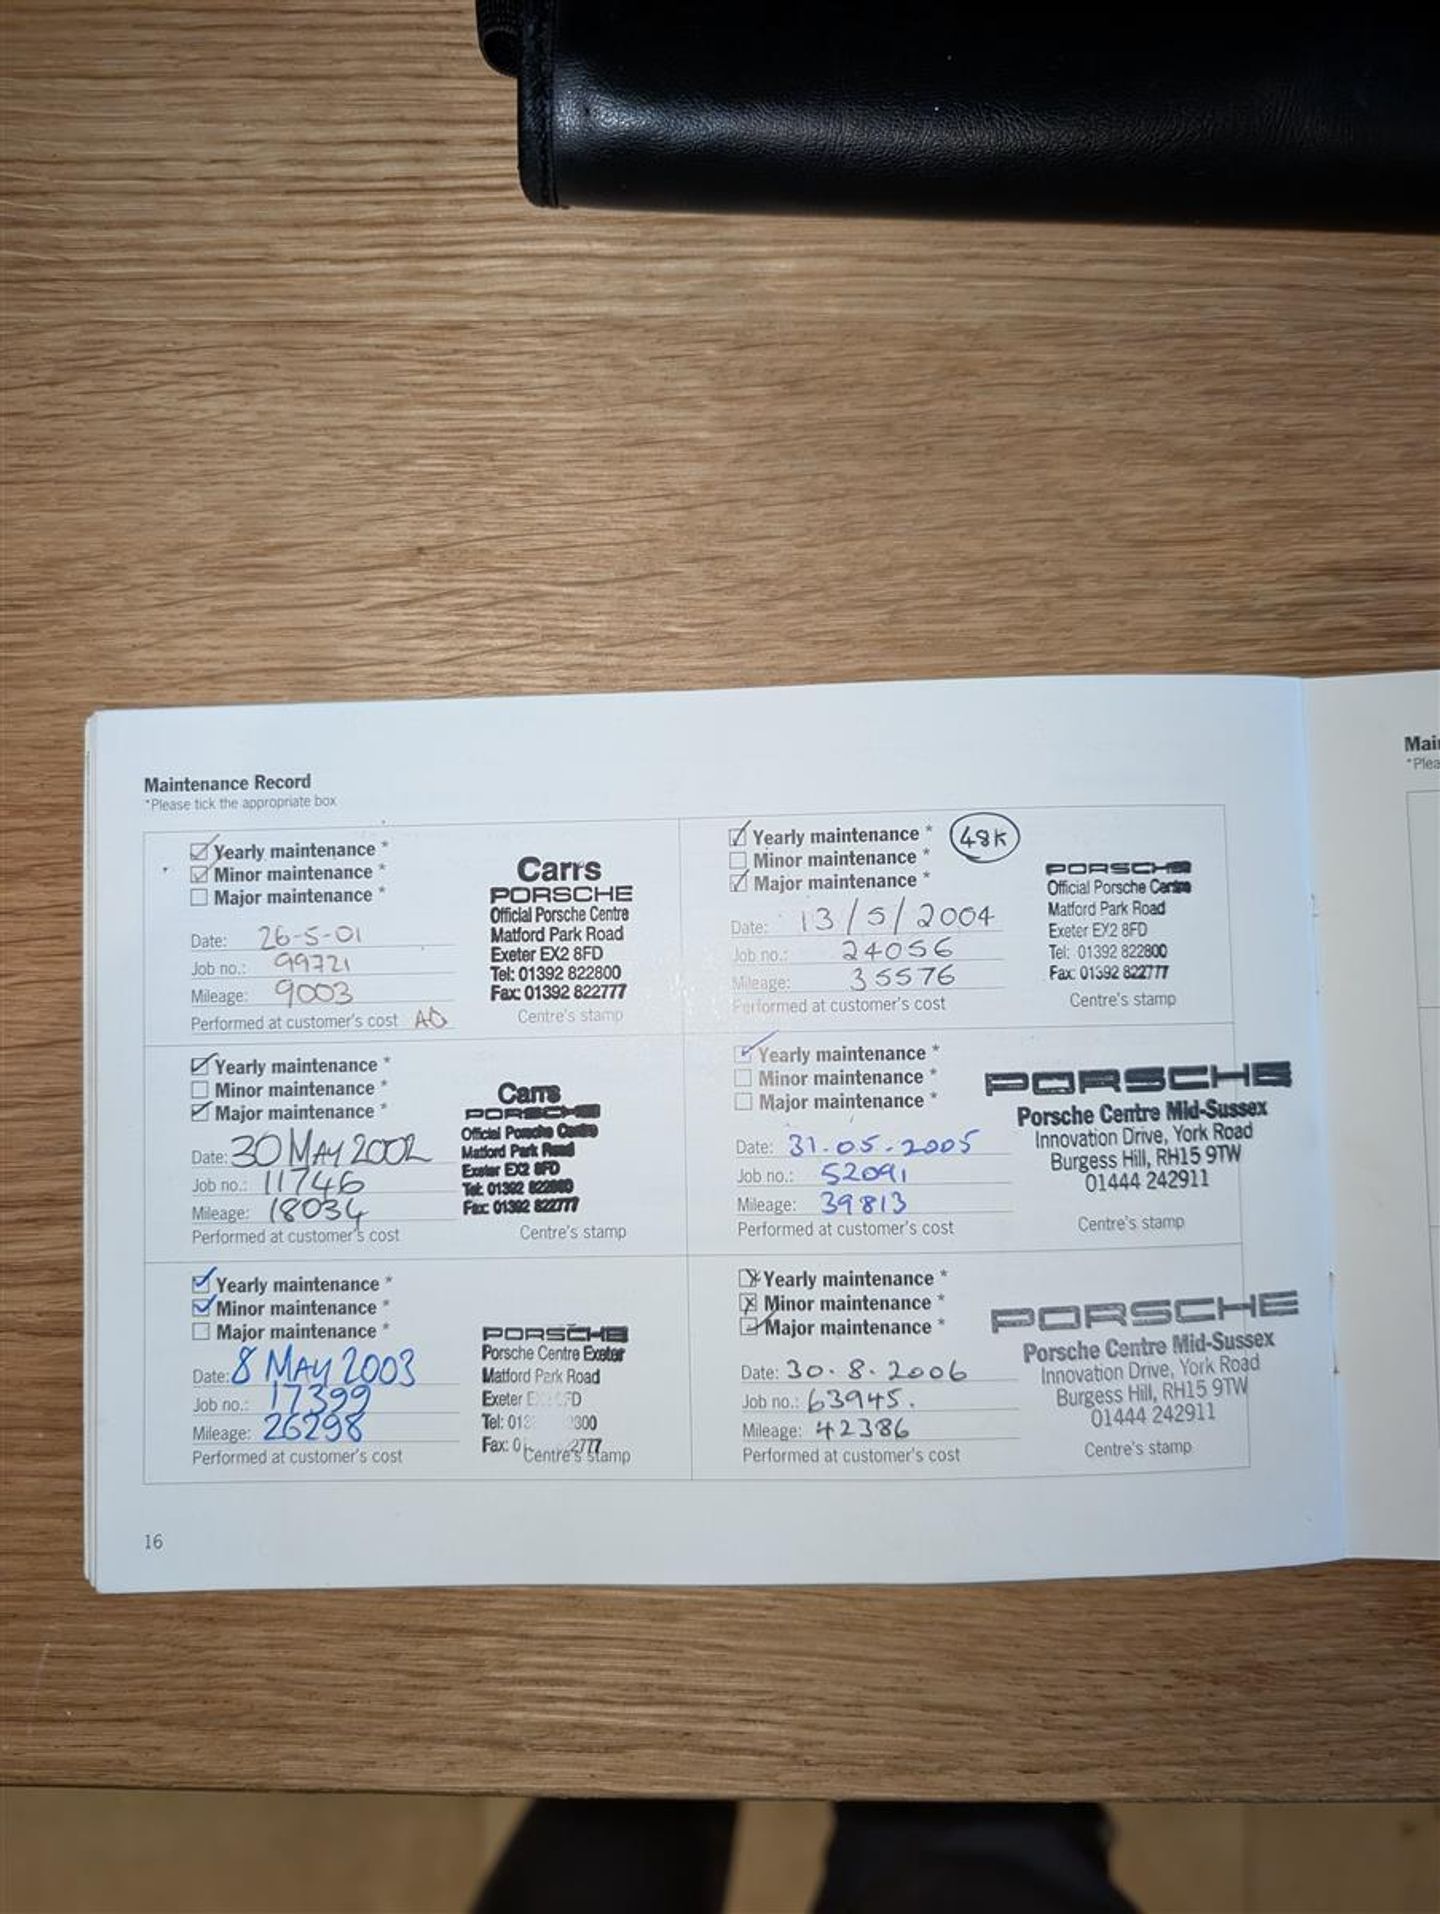 Maintenance Record
*Please tick the appropriate box
Yearly maintenance *
Minor maintenance *
Major maintenance *
Date: 26-5-01
Job no.: 99721
Mileage: 9003
Performed at customer's cost
Carrs
PORSCHE
Official Porsche Centre
Matford Park Road
Exeter EX2 8FD
Tel: 01392 822800
Fax: 01392 822777
Centre's stamp
Yearly maintenance *
Minor maintenance *
Major maintenance *
Date: 30 MAY 2002
Job no.: 11746
Mileage: 18034
Performed at customer's cost
Carrs
PORSCHE
Official Porsche Centre
Matford Park Road
Exeter EX2 8FD
Tel: 01392 822800
Fax: 01392 822777
Centre's stamp
Yearly maintenance *
Minor maintenance *
Major maintenance *
Date: 8 MAY 2003
Job no.: 17399
Mileage: 26298
Performed at customer's cost
PORSCHE
Porsche Centre Exeter
Matford Park Road
Exeter
Tel:
Fax:
Centre's stamp
Yearly maintenance *
48K
Minor maintenance *
Major maintenance *
Date: 13/5/2004
Job no.: 24056
Mileage: 35576
Performed at customer's cost
PORSCHE
Official Porsche Centre
Matford Park Road
Exeter EX2 8FD
Tel: 01392 822800
Fax: 01392 822777
Centre's stamp
Yearly maintenance *
Minor maintenance *
Major maintenance *
Date: 31.05.2005
Job no.: 52091
Mileage: 39813
Performed at customer's cost
PORSCHE
Porsche Centre Mid-Sussex
Innovation Drive, York Road
Burgess Hill, RH15 9TW
01444 242911
Centre's stamp
Yearly maintenance *
Minor maintenance *
Major maintenance *
Date: 30.8.2006
Job no.: 63945.
Mileage: 42386
Performed at customer's cost
PORSCHE
Porsche Centre Mid-Sussex
Innovation Drive, York Road
Burgess Hill, RH15 9TW
01444 242911
Centre's stamp
16
Mai
*Plea